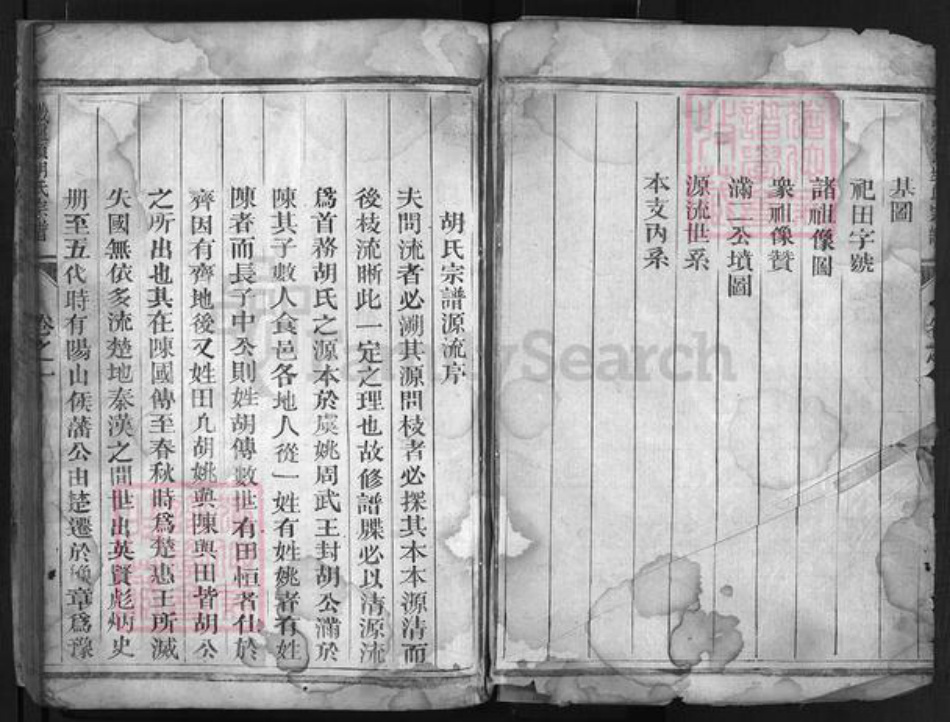 基圖
祀田字號
諸祖像圖
衆祖像贊
滿二公墳圖
源流世系
本支內系
胡氏宗譜源流序
夫問流者必溯其源問枝者必探其本本源清而
後枝流晰此一定之理也故修譜牒必以清源流
爲首務胡氏之源本於虞姚周武王封胡公滿於
陳其子數人食邑各地人從一姓有姓姚者有姓
陳者而長子中公則姓胡傳數世有田恒者仕於
齊因有齊地後又姓田凢胡姚與陳與田皆胡公
之所出也其在陳國傳至春秋時爲楚惠王所滅
失國無依多流楚地秦漢之間世出英賢彪炳史
册至五代時有陽山侯藩公由楚遷於豫章爲豫
胡氏宗譜
卷之一
FamilySearch